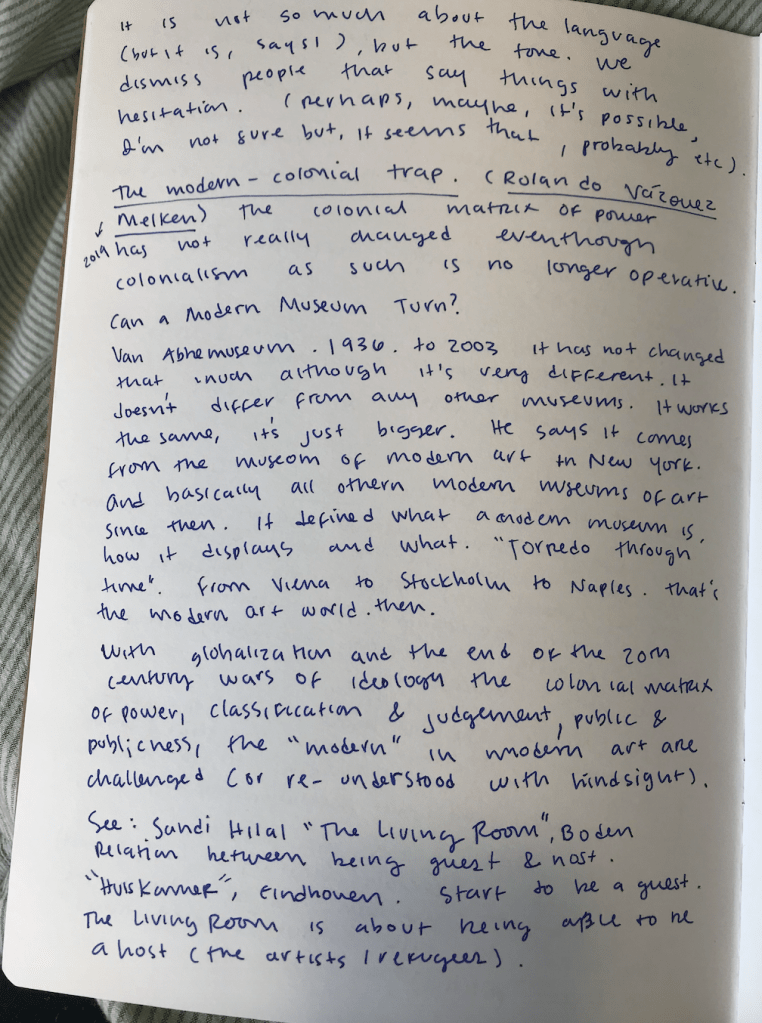 It is not so much about the language
(but it is, says I), but the tone. We
dismiss people that say things with
hesitation. (perhaps, maybe, it's possible,
I'm not sure but, it seems that, probably etc).
The modern-colonial trap. (Rolando Vázquez
Melken) The colonial matrix of power
2019 has not really changed eventhough
colonialism as such is no longer operative.
Can a Modern Museum Turn?
Van Abbemuseum. 1936. to 2003 It has not changed
that much although it's very different. It
doesn't differ from any other museums. It works
the same, it's just bigger. He says it comes
from the museom of modern art in New York.
And basically all othern modern museums of art
since then. It defined what a modern museum is,
how it displays and what. "Torpedo through
time". From Viena to Stockholm to Naples. that's
the modern art world. then.
With globalization and the end of the 20th
century wars of ideology the colonial matrix
of power, classification & judgement, public &
publicness, the "modern" in modern art are
challenged (or re-understood with hindsight).
See: Sandi Hilal "The Living Room", Boden
Relation between being guest & host.
"Huiskamer", Eindhoven. Start to be a guest.
The Living Room is about being able to be
a host (the artists / refugees).